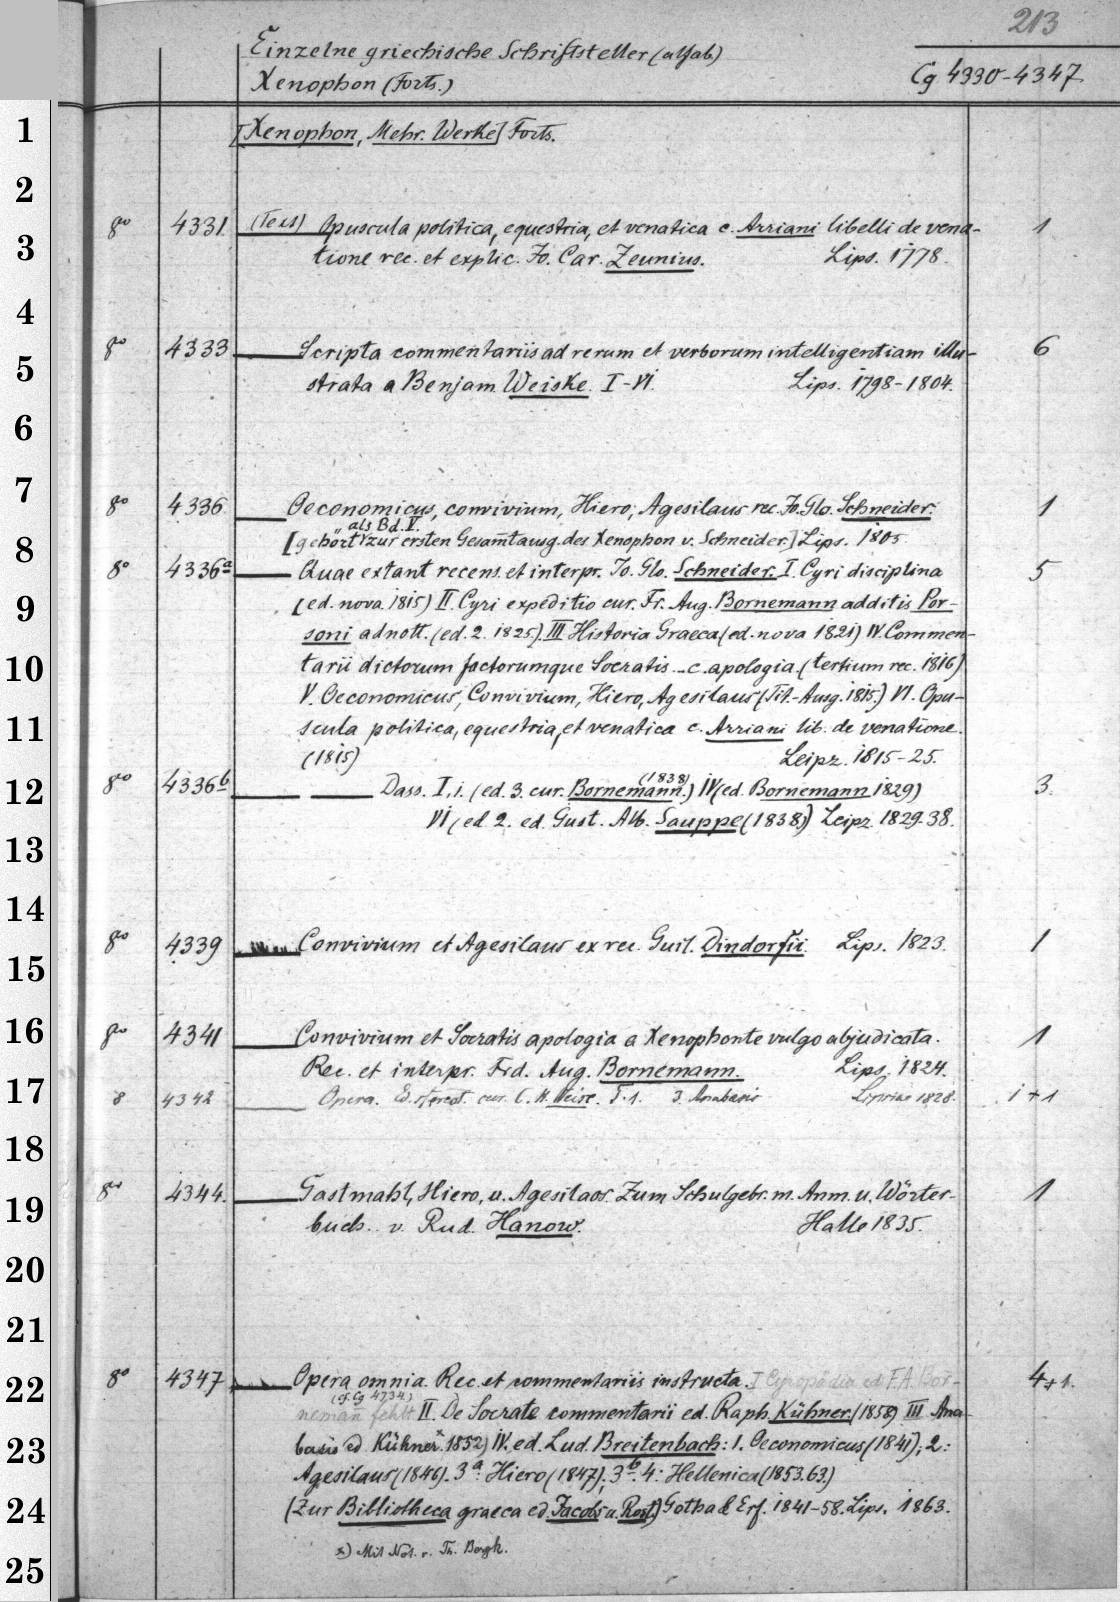 213
Einzelne griechische Schriftsteller (alfab)
Xenophon (Forts.)
Cg 4330-4347
1
[Xenophon, Mehr. Werke] Forts.
2
8º 4331 (Text) Opuscula politica, equestria, et venatica c. Arriani libelli de vena- 1
3
tione rec. et explic. Jo. Car. Zeunius. Lips. 1778.
4
8º 4333 Scripta commentariis ad rerum et verborum intelligentiam illu- 6
5
strata a Benjam. Weiske. I-VI. Lips. 1798-1804.
6
7
8º 4336 Oeconomicus, convivium, Hiero, Agesilaus rec. Jo. Glo. Schneider. 1
als Bd. V.
8
[gehört zur ersten Gesamtausg. des Xenophon v. Schneider.] Lips. 1805
8º 4336a Quae extant recens. et interpr. Jo. Glo. Schneider. I. Cyri disciplina 5
9
(ed. nova 1815) II. Cyri expeditio cur. Fr. Aug. Bornemann additis Por-
soni adnott. (ed. 2. 1825). III Historia Graeca (ed. nova 1821) IV. Commen-
10
tarii dictorum factorumque Socratis c. apologia. (tertium rec. 1816)
V. Oeconomicus, Convivium, Hiero, Agesilaus (Tit.-Ausg. 1815.) VI. Opu-
11
scula politica, equestria, et venatica c. Arriani lib. de venatione.
(1815) Leipz. 1815-25.
(1838)
12
8º 4336b Dass. I, i. (ed. 3. cur. Bornemann.) IV (ed. Bornemann 1829) 3.
VI (ed. 2. ed. Gust. Alb. Sauppe (1838)) Leipz. 1829-38.
13
14
8º 4339 Convivium et Agesilaus ex rec. Guil. Dindorfii. Lips. 1823. 1
15
16
8º 4341 Convivium et Socratis apologia a Xenophonte vulgo abjudicata. 1
Rec. et interpr. Frd. Aug. Bornemann. Lips. 1824.
17
8 4342 Opera. Ed. stereot. cur. C. H. Weise. T. 1. 3. Anabasis Lipsiae 1828. 1+1
18
8º 4344. Gastmahl, Hiero, u. Agesilaos. Zum Schulgebr. m. Anm. u. Wörter- 1
19
buch v. Rud. Hanow. Halle 1835.
20
21
8º 4347 Opera omnia. Rec. et commentariis instructa. I Cyropädia ed. F. A. Bor- 4+1.
22
(cf. Cg 4734)
nemañ fehlt II. De Socrate commentarii ed. Raph. Kühner. (1858) III Ana-
23
basis ed Kühner.x 1852) IV. ed. Lud. Breitenbach: 1. Oeconomicus (1841); 2:
Agesilaus (1846). 3a: Hiero (1847); 3b. 4: Hellenica (1853.63.)
24
(Zur Bibliotheca graeca ed. Jacobs u. Rost.) Gotha & Erf. 1841-58. Lips. 1863.
x) Mit Not. v. Th. Bergk.
25